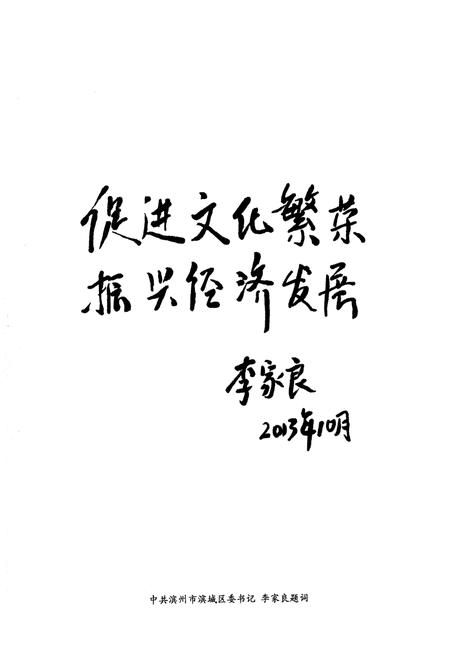 促进文化繁荣
振兴经济发展
李家良
2013年10月
中共滨州市滨城区委书记 李家良题词